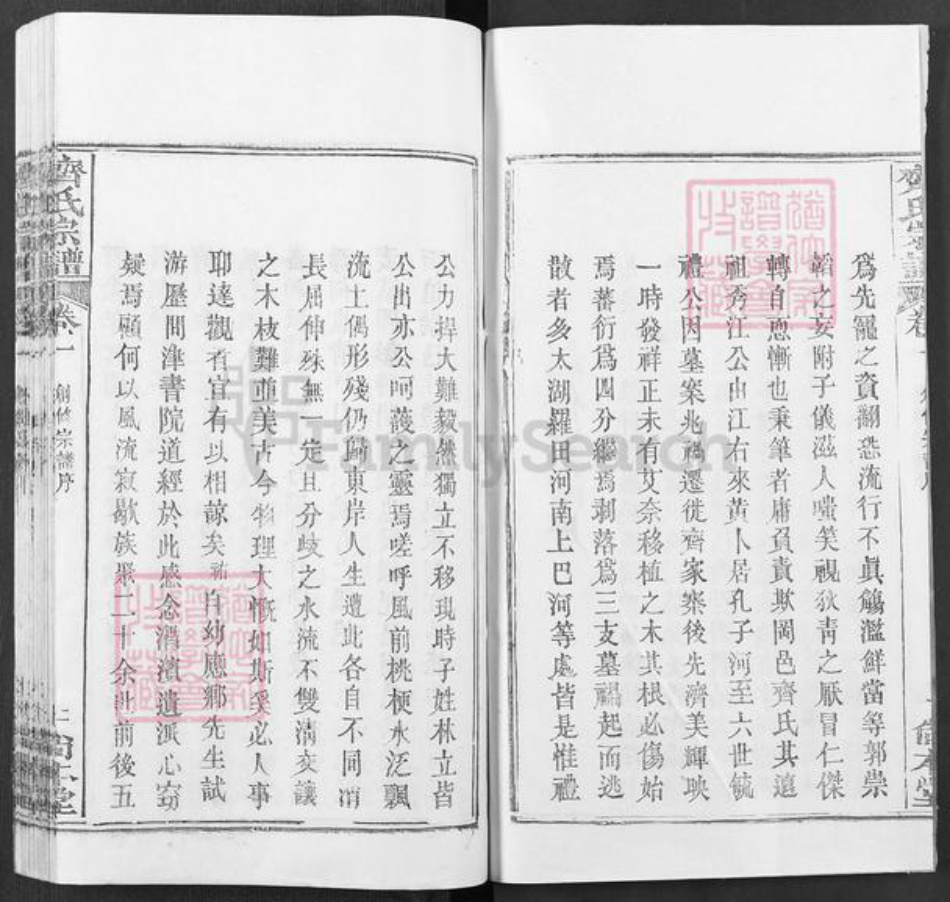 爲先寵之資翻恐流行不眞觴濫鮮當等郭崇
韜之妄附子儀滋人嗤笑視狄青之厭冒仁傑
轉自愿慚也秉筆者庸負責欺岡邑齊氏其遠
祖秀江公由江右來黃卜居孔子河至六世毓
禮公因墓案兆禍遷徙齊家寨後先濟美輝映
一時發祥正未有艾奈移植之木其根必傷始
焉蕃衍爲四分繼焉剥落爲三支墓禍起而逃
散者多太湖羅田河南上巴河等處皆是惟禮
公力捍大難毅然獨立不移現時子姓林立皆
公出亦公呵護之靈焉嗟呼風前桃梗水泛飄
流土偶形殘仍歸東岸人生遭此各自不同消
長屈伸殊無一定且分歧之水流不雙清交讓
之木枝難並美古今物理大慨如斯奚必人事
耶達觀者宜有以相諒矣 自幼應鄉先生試
游歷問津書院道經於此感念清濱遺派心竊
疑焉顧何以風流寂歇族聚二十余世前後五
齊氏宗譜 卷一 創修宗譜序 二 尙本堂
FamilySearch